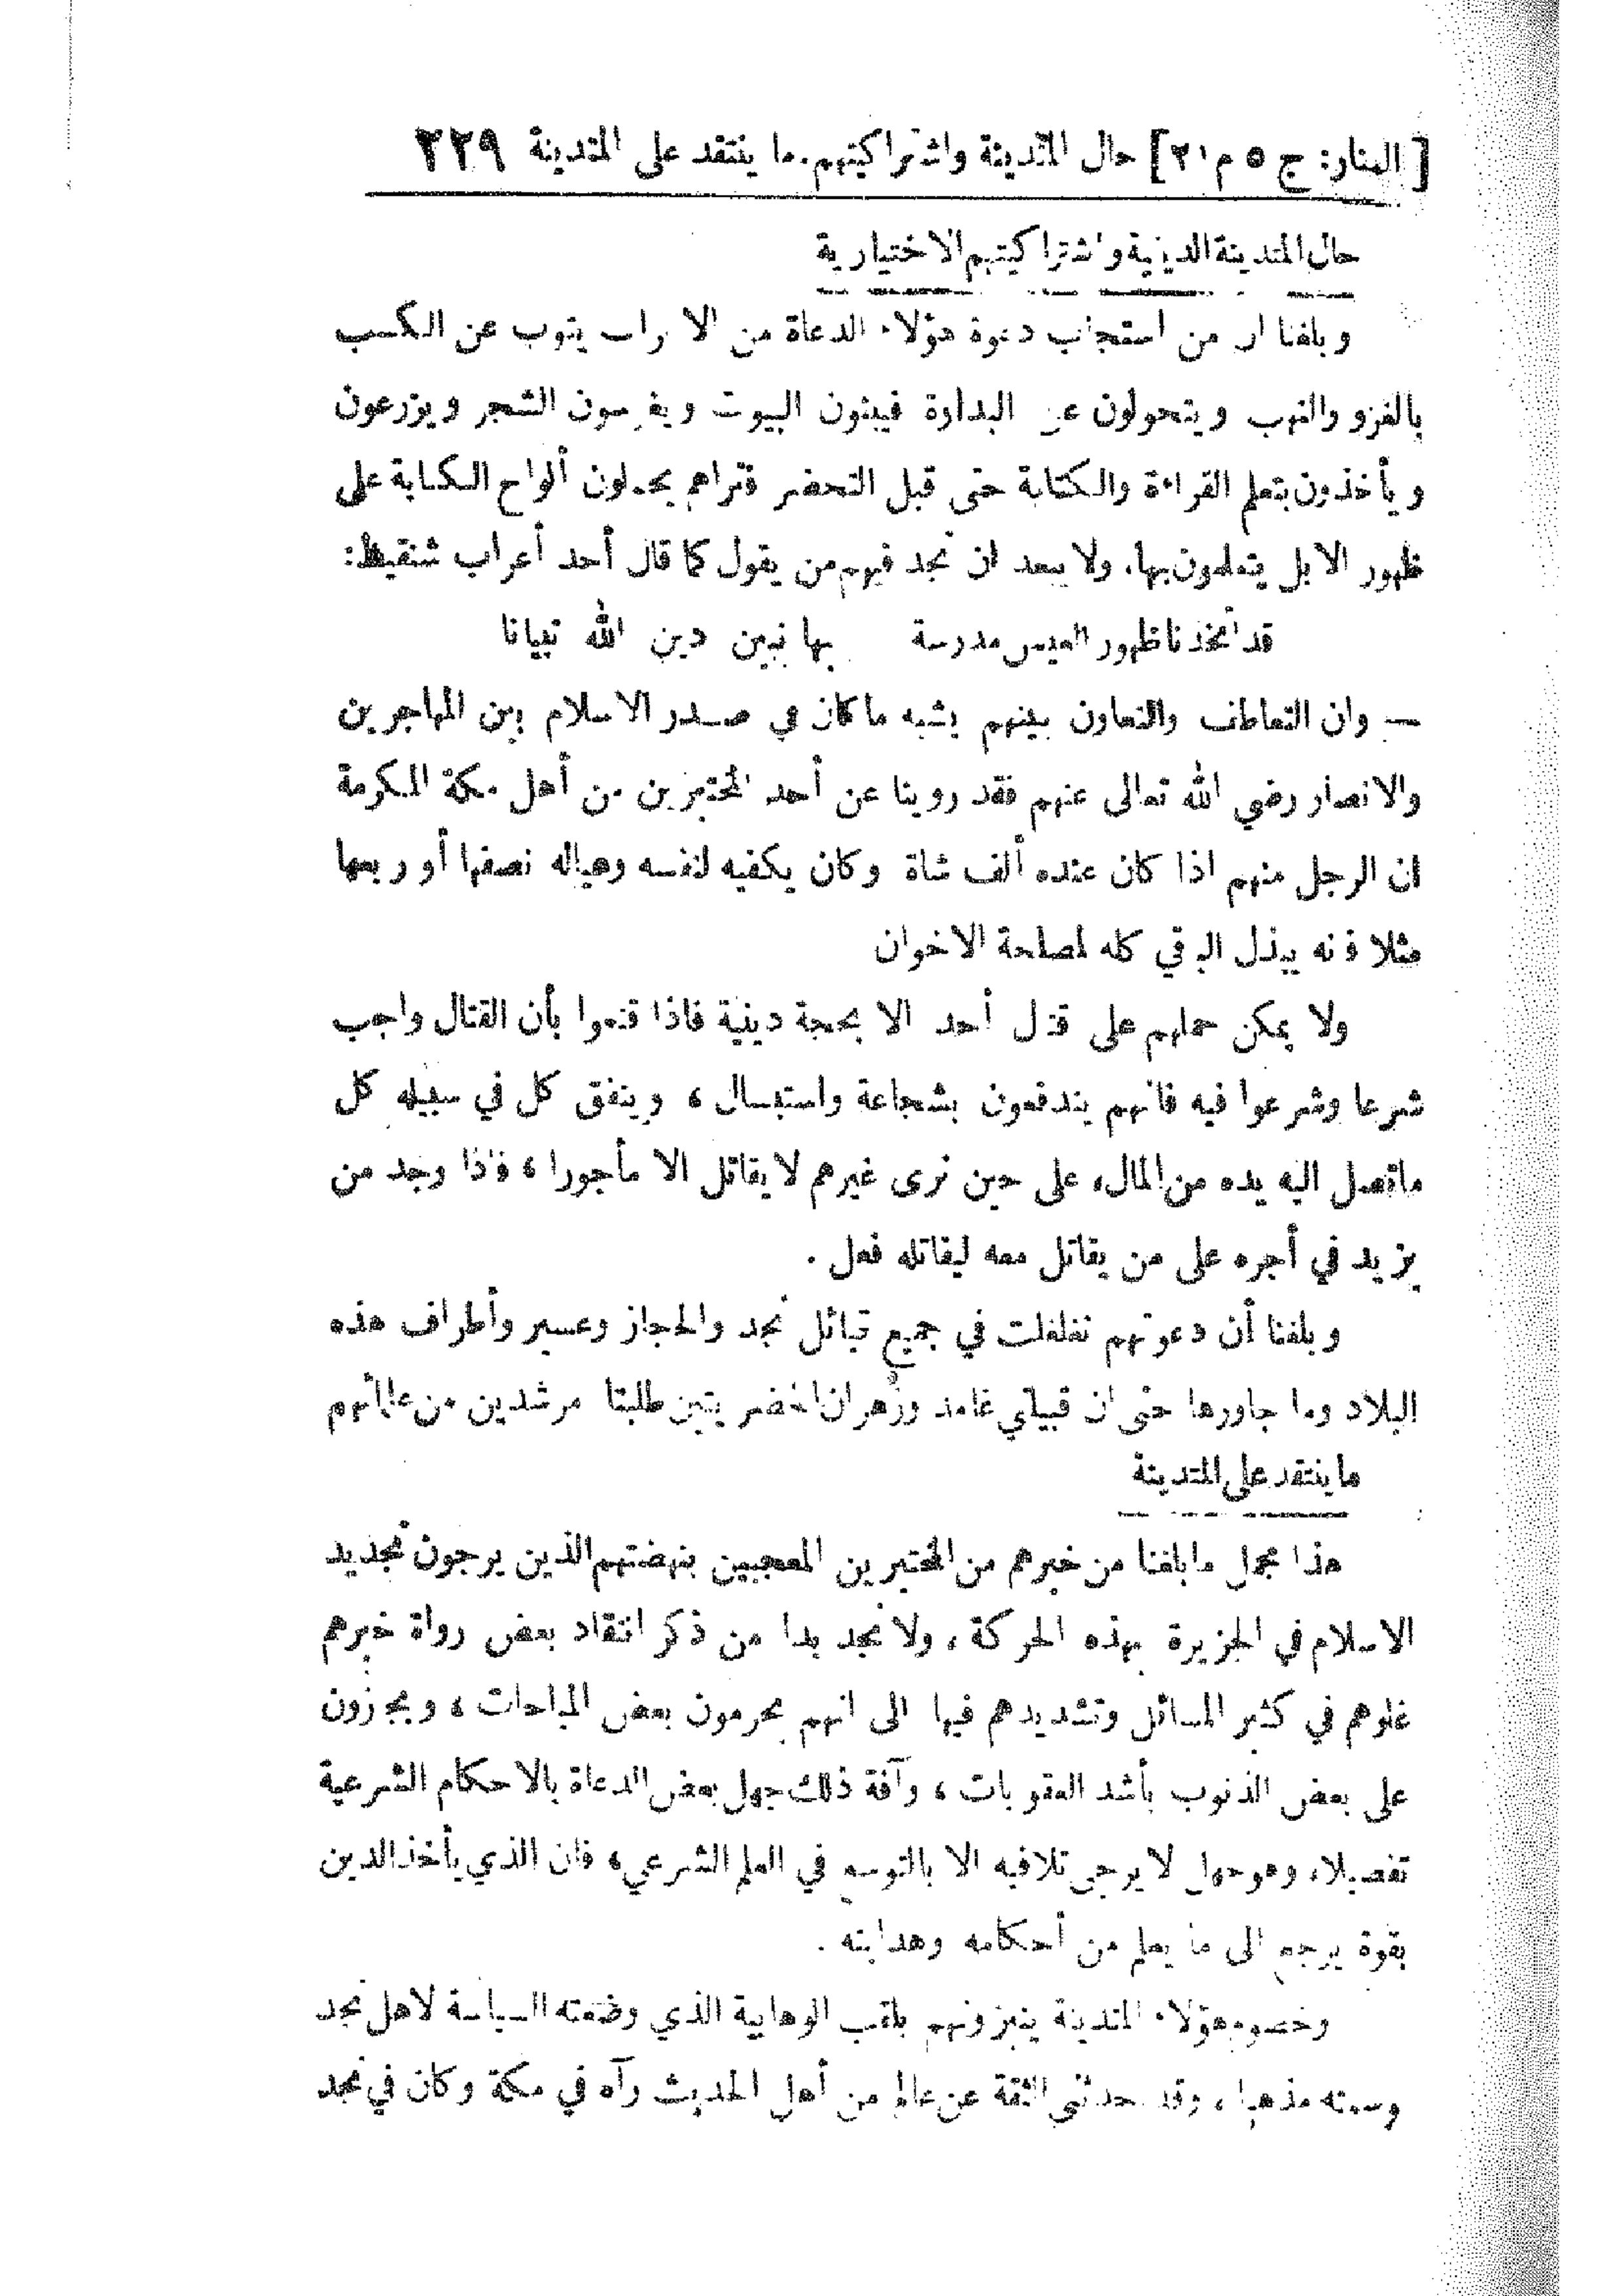 [ المنار: ج ٥ م ٢١ ] حال المتدينة واشتراكيتهم. ما ينتقد على المتدينة ٢٢٩
حال المتدينة الدينية واشتراكيتهم الاختيارية
وبلغنا ان من استجاب دعوة هؤلاء الدعاة من الاعراب يتوب عن الكسب
بالغزو والنهب ويتحولون عن البداوة فيبنون البيوت ويغرسون الشجر ويزرعون
ويأخذون بتعلم القراءة والكتابة حتى قبل التحضر فتراهم يحملون ألواح الكتابة على
ظهور الابل يتعلمون بها. ولا يبعد ان تجد فيهم من يقول كما قال أحد أعراب شنقيط:
قد اتخذنا ظهور العيس مدرسة بها نبين دين الله تبيانا
— وان التعاطف والتعاون بينهم يشبه ما كان في صدر الاسلام بين المهاجرين
والانصار رضي الله تعالى عنهم فقد روينا عن أحد المختبرين من أهل مكة المكرمة
ان الرجل منهم اذا كان عنده ألف شاة وكان يكفيه لنفسه وعياله نصفها أو ربعها
مثلا فانه يبذل الباقي كله لمصلحة الاخوان
ولا يمكن حملهم على قتال أحد الا بحجة دينية فاذا قنعوا بأن القتال واجب
شرعا وشرعوا فيه فانهم يندفعون بشجاعة واستبسال ، وينفق كل في سبيله كل
ماتصل اليه يده من المال، على حين نرى غيرهم لا يقاتل الا مأجورا ، فاذا وجد من
يزيد في أجره على من يقاتل معه ليقاتله فعل .
وبلغنا أن دعوتهم تغلغلت في جميع قبائل نجد والحجاز وعسير وأطراف هذه
البلاد وما جاورها حتى ان قبيلتي غامد وزهران الخضريتين طلبتا مرشدين من علمائهم
ما ينتقد على المتدينة
هذا مجمل ما بلغنا من خبرهم من المختبرين المعجبين بنهضتهم الذين يرجون تجديد
الاسلام في الجزيرة بهذه الحركة ، ولا نجد بدا من ذكر انتقاد بعض رواة خبرهم
غلوهم في كثير المسائل وتشديدهم فيها الى انهم يحرمون بعض المباحات ، ويجزون
على بعض الذنوب بأشد العقوبات ، وآفة ذلك جهل بعض الدعاة بالاحكام الشرعية
تفصيلا، وهو جهل لا يرجى تلافيه الا بالتوسع في العلم الشرعي، فان الذي يأخذ الدين
بقوة يرجع الى ما يعلم من أحكامه وهدايته .
وخصوم هؤلاء المتدينة ينبزونهم بلقب الوهابية الذي وضعته السياسة لاهل نجد
وسمته مذهبا ، وقد حدثني الثقة عن عالم من أهل الحديث رآه في مكة وكان في نجد